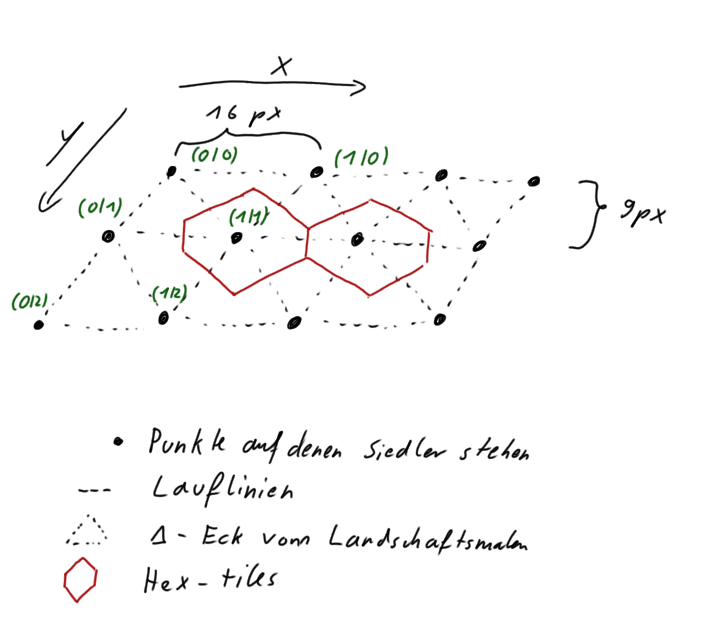 X
16 px
y
(0/0)
(1/0)
(0/1)
(1/1)
9px
(0/2)
(1/2)
Punkte auf denen Siedler stehen
Lauflinien
Δ-Eck vom Landschaftsmalen
Hex-tiles